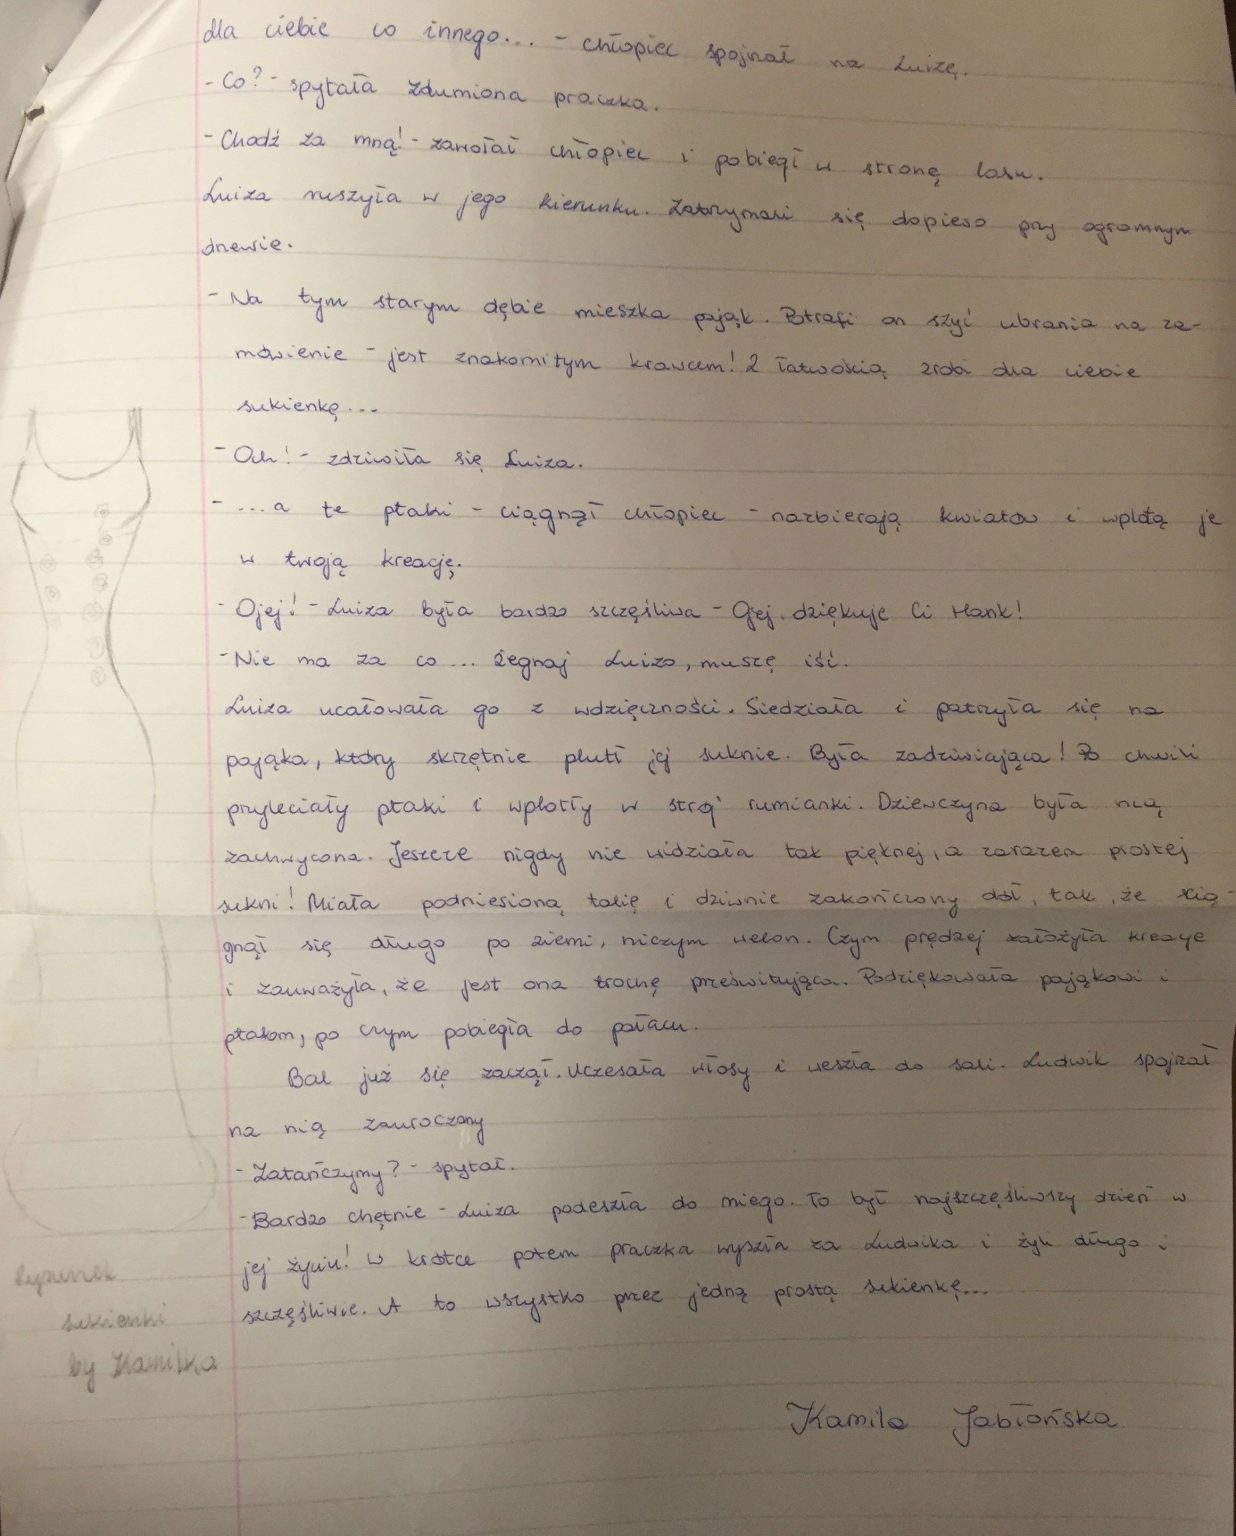 dla ciebie co innego... - chłopiec spojrzał na Luizę.
- Co? - spytała zdumiona praczka.
- Chodź za mną! - zawołał chłopiec i pobiegł w stronę lasu.
Luiza ruszyła w jego kierunku. Zatrzymali się dopiero przy ogromnym
drzewie.
- Na tym starym dębie mieszka pająk. Potrafi on szyć ubrania na za-
mówienie - jest znakomitym krawcem! Z łatwością zrobi dla ciebie
sukienkę...
- Och! - zdziwiła się Luiza.
- ...a te ptaki - ciągnął chłopiec - nazbierają kwiatów i wplotą je
w twoją kreację.
- Ojej! - Luiza była bardzo szczęśliwa - Ojej, dziękuję Ci Hank!
- Nie ma za co... Żegnaj Luizo, muszę iść.
Luiza ucałowała go z wdzięczności. Siedziała i patrzyła się na
pająka, który skrzętnie plutł jej suknie. Była zadziwiająca! Po chwili
przyleciały ptaki i wplotły w strój rumianki. Dziewczyna była nią
zachwycona. Jeszcze nigdy nie widziała tak pięknej, a zarazem prostej
sukni! Miała podniesioną talię i dziwnie zakończony dół, tak, że cią-
gnął się długo po ziemi, niczym welon. Czym prędzej założyła kreacje
i zauważyła, że jest ona trochę prześwitująca. Podziękowała pająkowi i
ptakom, po czym pobiegła do pałacu.
Bal już się zaczął. Uczesała włosy i weszła do sali. Ludwik spojrzał
na nią zauroczony
- Zatańczymy? - spytał.
- Bardzo chętnie - Luiza podeszła do niego. To był najszczęśliwszy dzień w
jej życiu! W krótce potem praczka wyszła za Ludwika i żyli długo i
szczęśliwie. A to wszystko przez jedną prostą sukienkę...
Rysunek
sukienki
by Kamilka
Kamila Jabłońska